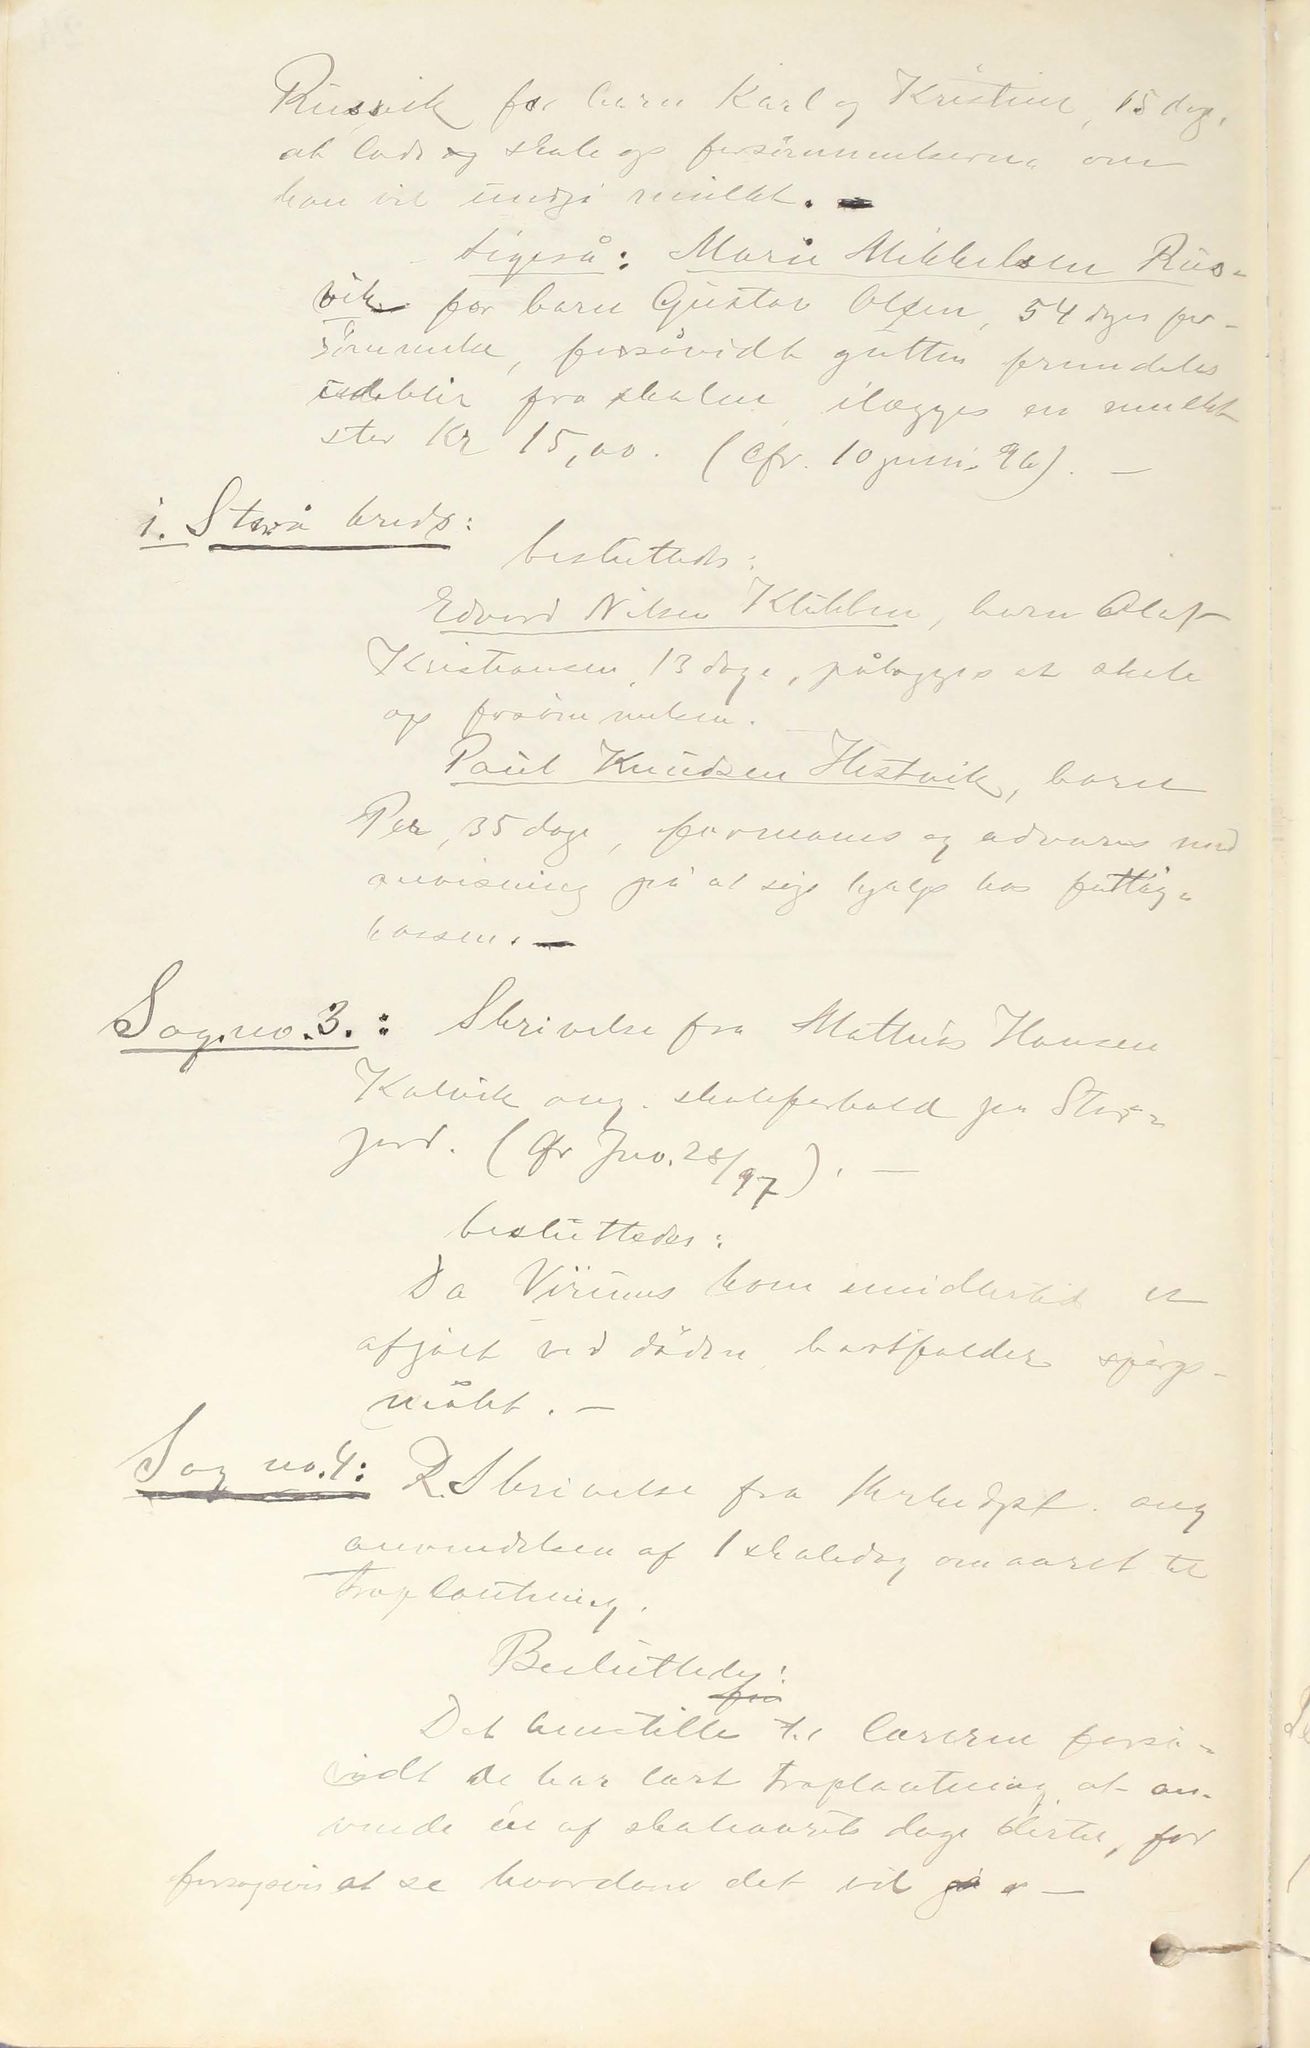 Rusvik for barn Karl og Kristine, 15 dage,
at lade og skole op forsömmelserne om
han vil undgå mulkt. —
Ligeså: Marie Mikkelsen Rus-
vik for barn Gustav Olsen, 54 dages for-
sömmelse, forsåvidt gutten fremdeles
udeblir fra skolen ilægges en mulkt
stor Kr 15,00. (Cfr. 10 juni 96). —
i. Storå kreds:
besluttedes:
Edvard Nilsen Klubben, barn Olaf
Kristiansen, 13 dage, pålægges at skole
op forsömmelsen.
Paul Knudsen Hestvik, barn
Per, 35 dage, formanes og advares med
anvisning på at søge hjælp hos fattig-
kassen. —
Sag no. 3.: Skrivelse fra Mathias Hansen
Kalvik ang. skoleforhold på Stor-
jord. (Cfr Jno. 28/97). —
besluttedes:
Da Virums kom imidlertid er
afgjort ved döden, bortfalder spörgs-
målet. —
Sag no. 4: R. Skrivelse fra Kirkedpt. ang
anvendelsen af 1 skoledag om aaret til
træplantning.
Besluttedes:
Det henstilles til lærerne forså-
vidt de har lært træplantning at an-
vende én af skoleaarets dage dertil, for
forsøgsvis at se hvordan det vil gå. —